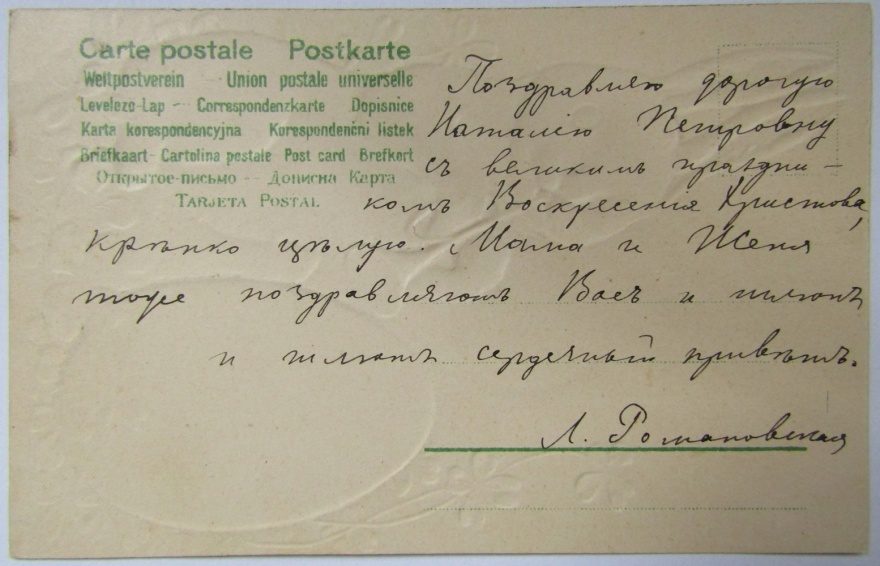 Carte postale Postkarte
Weltpostverein — Union postale universelle
Levelezo-Lap — Correspondenzkarte Dopisnice
Karta korespondencyjna Korespondenční listek
Briefkaart — Cartolina postale Post card Brefkort
Открытое-письмо — Дописна Карта
TARJETA POSTAL
Поздравляю дорогую
Наталію Петровну
съ великимъ праздни-
комъ Воскресенія Христова,
крѣпко цѣлую. Мама и Женя
тоже поздравляютъ Васъ и шлютъ
и шлютъ сердечный привѣтъ.
Л. Романовская